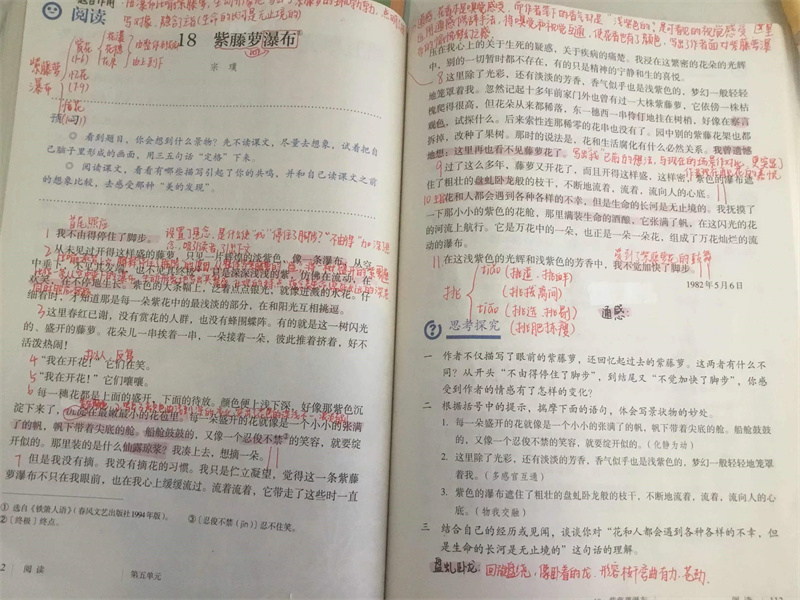 阅读
18 紫藤萝瀑布
宗璞
赏花
(1-6)
忆花
(7-9)
悟花
紫藤萝
瀑布
◎ 看到题目，你会想到什么景物？先不读课文，尽量去想象，试着把自
己脑子里形成的画面，用三五句话“定格”下来。
◎ 阅读课文，看看有哪些描写引起了你的共鸣，并和自己读课文之前
的想象比较，去感受那种“美的发现”。
首尾照应
1 我不由得停住了脚步。
2 从未见过开得这样盛的藤萝，只见一片辉煌的淡紫色，像一条瀑布，从空
中垂下，不见其发端，也不见其终极，只是深深浅浅的紫，仿佛在流动，在
欢笑，在不停地生长。紫色的大条幅上，泛着点点银光，就像迸溅的水花。仔
细看时，才知那是每一朵紫花中的最浅淡的部分，在和阳光互相挑逗。
3 这里春红已谢，没有赏花的人群，也没有蜂围蝶阵。有的就是这一树闪光
的、盛开的藤萝。花朵儿一串挨着一串，一朵接着一朵，彼此推着挤着，好不
活泼热闹！
拟人、反复
4 “我在开花！”它们在笑。
5 “我在开花！”它们嚷嚷。
6 每一穗花都是上面的盛开、下面的待放。颜色便上浅下深，好像那紫色沉
淀下来了，沉淀在最嫩最小的花苞里。每一朵盛开的花就像是一个小小的张满
了的帆，帆下带着尖底的舱。船舱鼓鼓的，又像一个忍俊不禁的笑容，就要绽
开似的。那里装的是什么仙露琼浆？我凑上去，想摘一朵。
7 但是我没有摘。我没有摘花的习惯。我只是伫立凝望，觉得这一条紫藤
萝瀑布不只在我眼前，也在我心上缓缓流过。流着流着，它带走了这些时一直
① 选自《铁箫人语》（春风文艺出版社1994年版）。
②〔终极〕终点。
③〔忍俊不禁（jīn）〕忍不住笑。
2 阅读 第五单元
压在我心上的关于生死的疑惑，关于疾病的痛楚。我浸在这繁密的花朵的光辉
中，别的一切暂时都不存在，有的只是精神的宁静和生的喜悦。
8 这里除了光彩，还有淡淡的芳香，香气似乎也是浅紫色的，梦幻一般轻轻
地笼罩着我。忽然记起十多年前家门外也曾有过一大株紫藤萝，它依傍一株枯
槐爬得很高，但花朵从来都稀落，东一穗西一串伶仃地挂在树梢，好像在察言
观色，试探什么。后来索性连那稀零的花串也没有了。园中别的紫藤花架也都
拆掉，改种了果树。那时的说法是，花和生活腐化有什么必然关系。我曾遗憾
地想：这里再也看不见藤萝花了。
9 过了这么多年，藤萝又开花了，而且开得这样盛，这样密，紫色的瀑布遮
住了粗壮的盘虬卧龙般的枝干，不断地流着，流着，流向人的心底。
10 花和人都会遇到各种各样的不幸，但是生命的长河是无止境的。我抚摸了
一下那小小的紫色的花舱，那里满装生命的酒酿，它张满了帆，在这闪光的花
的河流上航行。它是万花中的一朵，也正是一朵一朵花，组成了万花灿烂的流
动的瀑布。
11 在这浅紫色的光辉和浅紫色的芳香中，我不觉加快了脚步。
1982年5月6日
挑
tiāo（挑选、挑担
tiǎo（挑拨
通感：
思考探究
一 作者不仅描写了眼前的紫藤萝，还回忆起过去的紫藤萝。这两者有什么不
同？从开头“不由得停住了脚步”，到结尾又“不觉加快了脚步”，你感
受到作者的情感有了怎样的变化？
二 根据括号中的提示，揣摩下面的语句，体会写景状物的妙处。
1. 每一朵盛开的花就像是一个小小的张满了的帆，帆下带着尖底的舱。船舱鼓鼓
的，又像一个忍俊不禁的笑容，就要绽开似的。（化静为动）
2. 这里除了光彩，还有淡淡的芳香，香气似乎也是浅紫色的，梦幻一般轻轻地笼罩
着我。（多感官互通）
3. 紫色的瀑布遮住了粗壮的盘虬卧龙般的枝干，不断地流着，流着，流向人的心
底。（物我交融）
三 结合自己的经历或见闻，谈谈你对“花和人都会遇到各种各样的不幸，但
是生命的长河是无止境的”这句话的理解。
盘虬卧龙：回旋盘绕，像卧着的龙。形容枝干弯曲有力、苍劲。